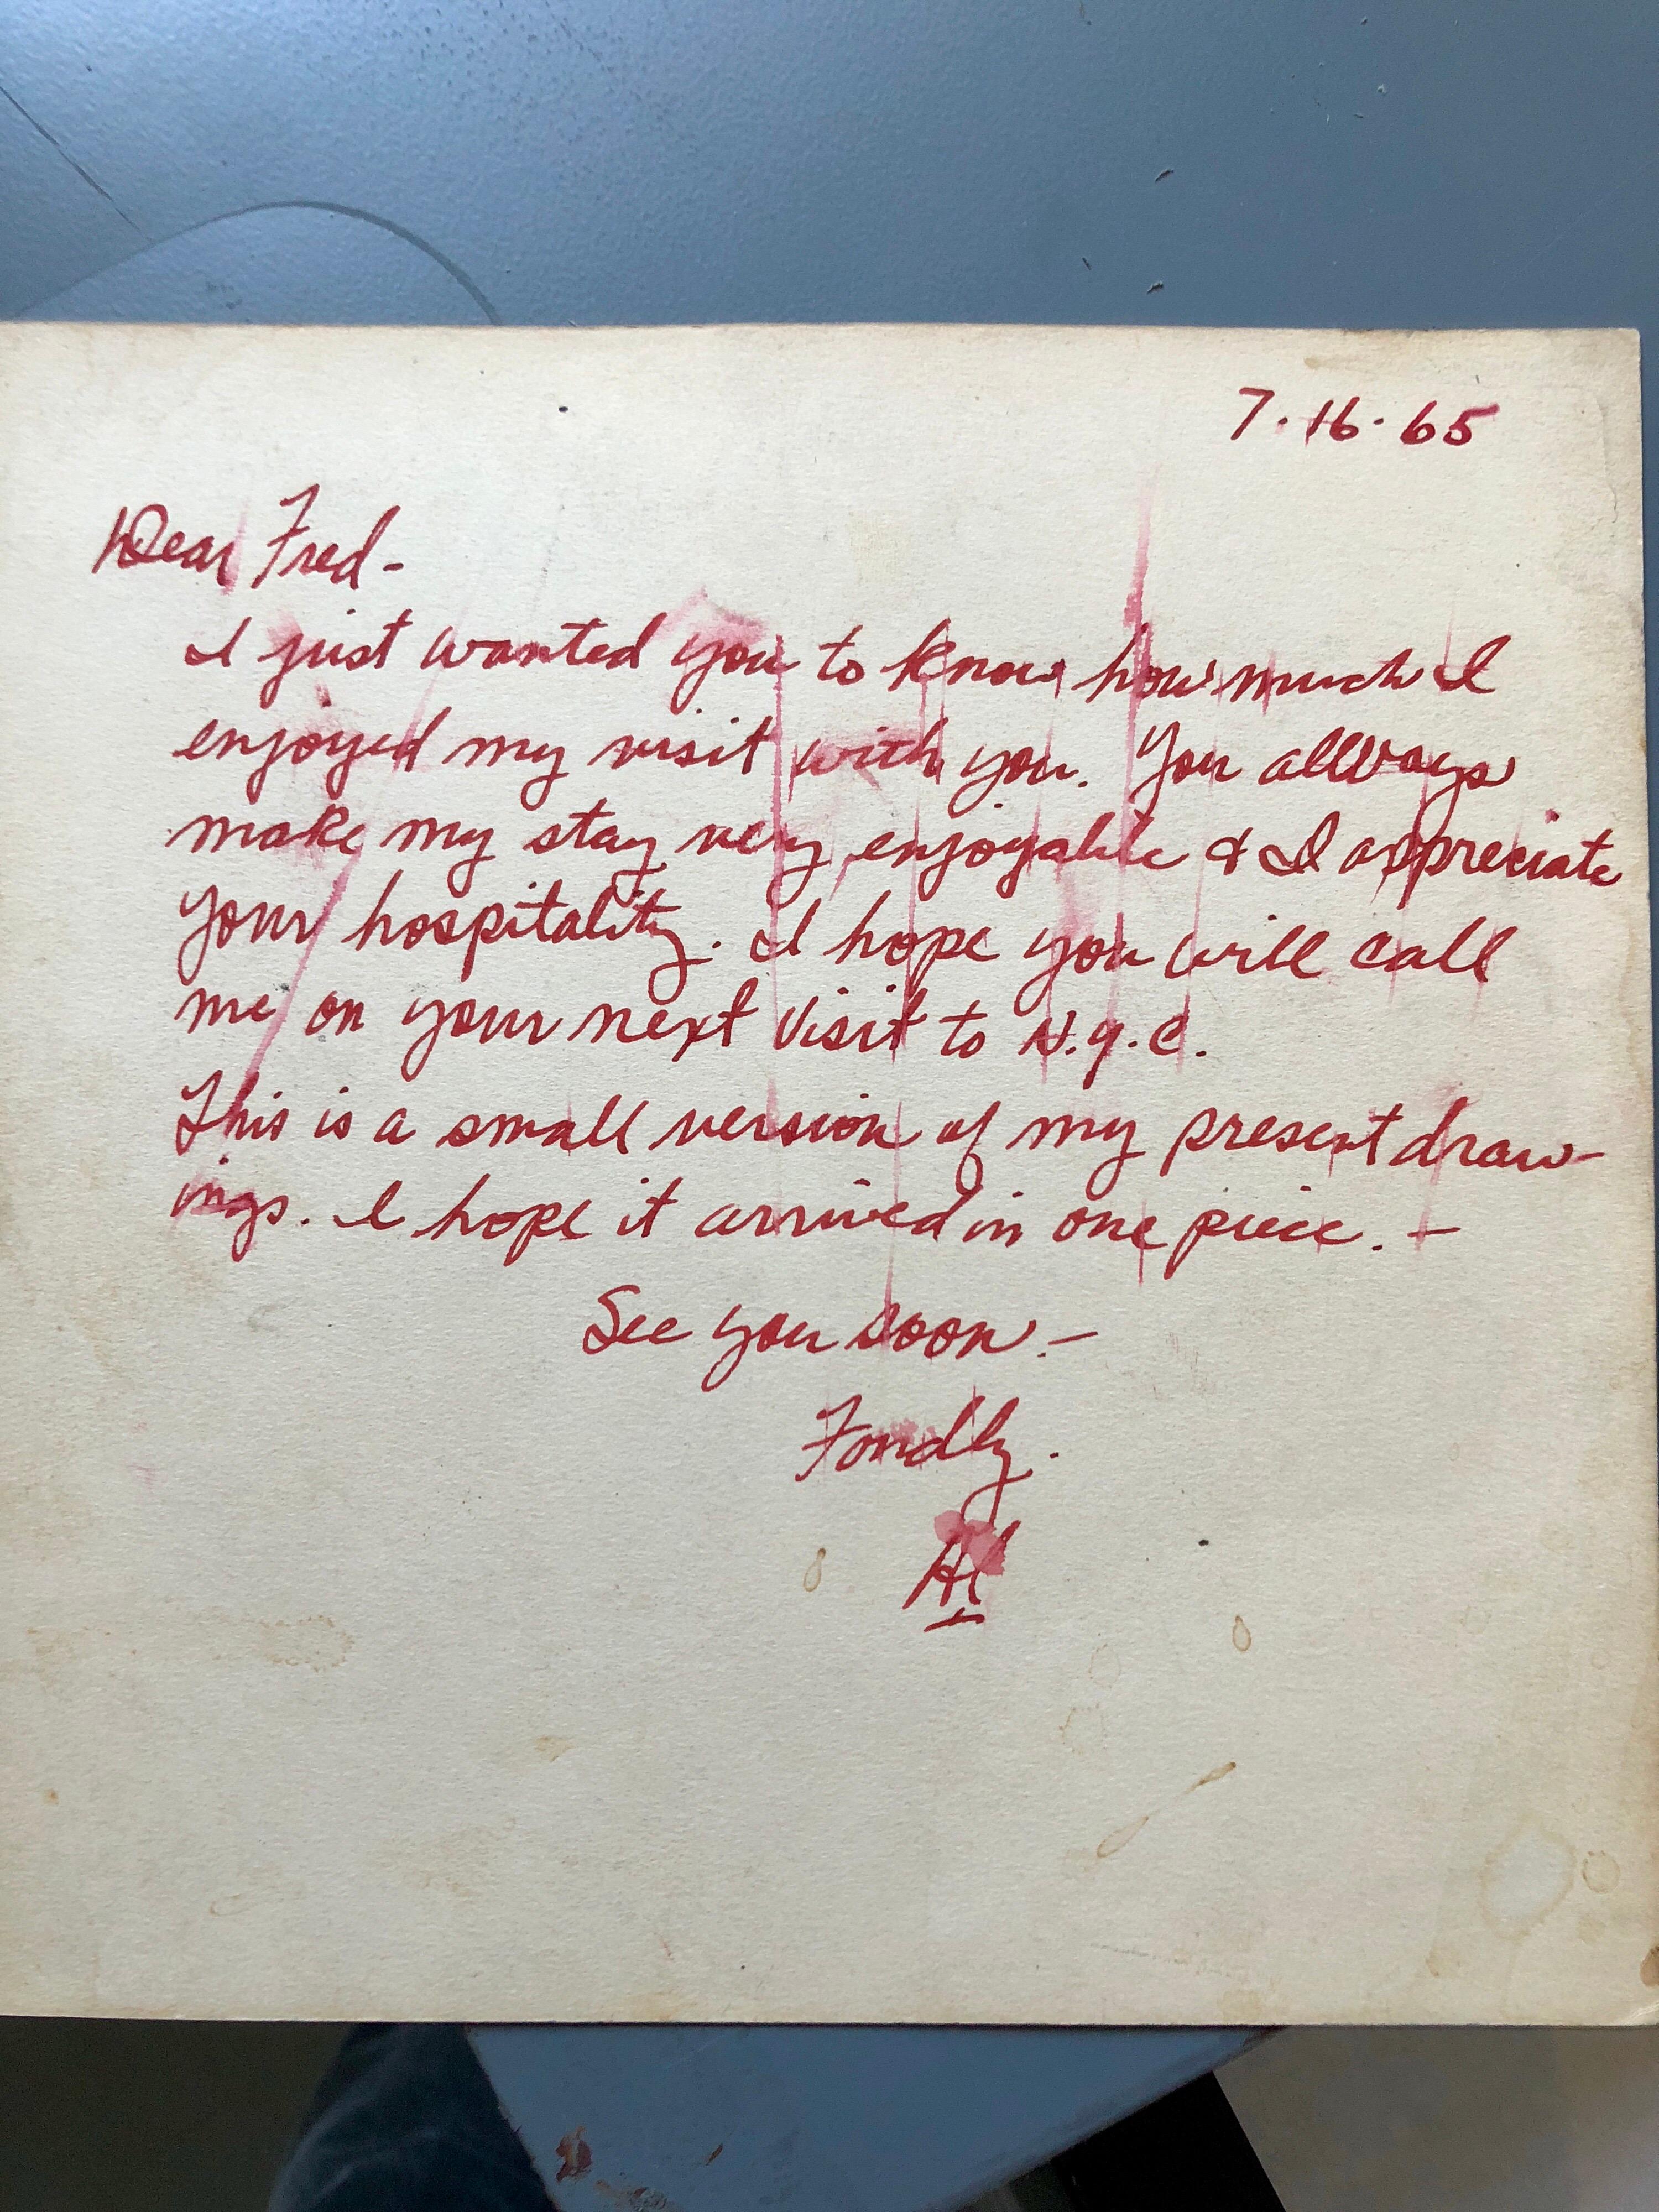 7.16.65
Dear Fred-
I just wanted you to know how much I
enjoyed my visit with you. You allways
make my stay very enjoyable & I appreciate
your hospitality. I hope you will call
me on your next visit to N.Y.C.
This is a small version of my present draw-
ings. I hope it arrived in one piece. -
See you soon. -
Fondly.
Al